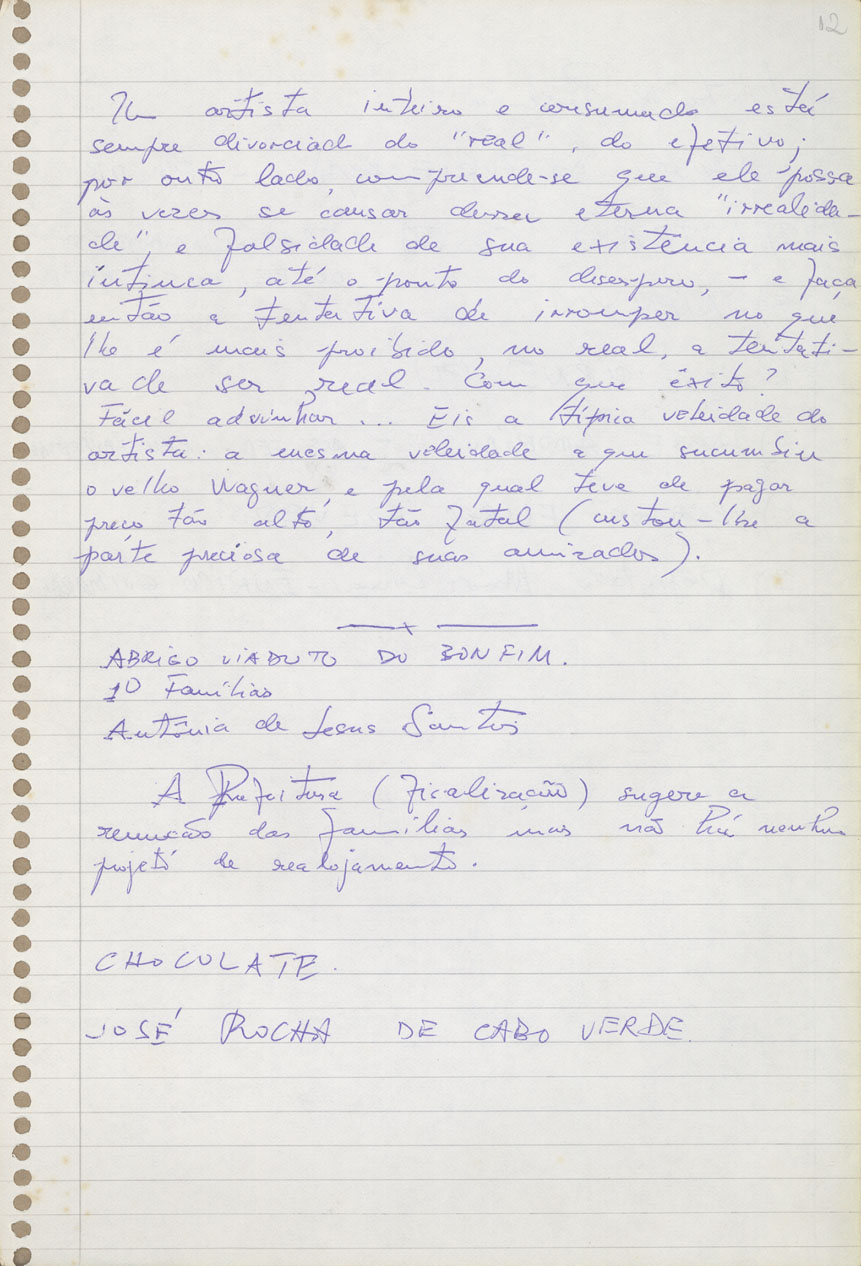 12
Um artista inteiro e consumado está
sempre divorciado do "real", do efetivo;
por outro lado, compreende-se que ele possa
às vezes se cansar dessa eterna "irrealida-
de", e falsidade de sua existência mais
íntima, até o ponto do desespero, – e faça
então a tentativa de irromper no que
lhe é mais proibido, no real, a tentati-
va de ser real. Com que êxito?
Fácil advinhar... Eis a típica veleidade do
artista: a mesma veleidade a que sucumbiu
o velho Wagner, e pela qual teve de pagar
preço tão alto, tão fatal (custou-lhe a
parte preciosa de suas amizades).
ABRIGO VIADUTO DO BONFIM.
10 Famílias
Antônia de Jesus Santos
A Prefeitura (ficalização) sugere a
remoção das famílias mas não há nenhum
projeto de realojamento.
CHOCOLATE.
JOSÉ ROCHA DE CABO VERDE.